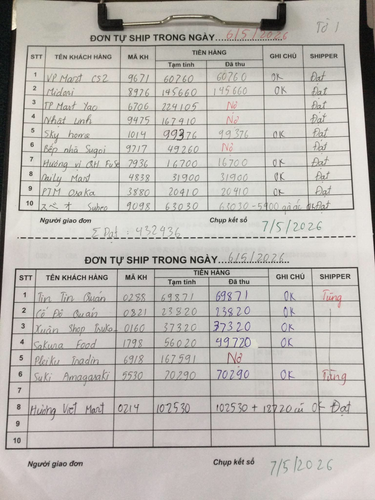 Tờ 1
ĐƠN TỰ SHIP TRONG NGÀY 6/5/2026
STT TÊN KHÁCH HÀNG MÃ KH TIỀN HÀNG GHI CHÚ SHIPPER
Tạm tính Đã thu
1 VP Mart CS2 9671 60260 60260 OK Đạt
2 Midori 8976 145660 145660 OK Đạt
3 TP Mart Yao 6706 224105 Nợ Đạt
4 Nhật Linh 9475 167410 Nợ Đạt
5 Sky home 1014 99376 99376 OK Đạt
6 Bếp nhà Sugoi 9717 49260 Nợ Đạt
7 Hương vị 7936 16700 16700 OK Đạt
8 Mart 4838 31900 31900 OK Đạt
9 PTM Osaka 3880 20410 20410 OK Đạt
10 9098 63030 63030 - 5400 OK Đạt
Người giao đơn Chụp kết sổ 7/5/2026
Σ Đạt : 432936
ĐƠN TỰ SHIP TRONG NGÀY 6/5/2026
STT TÊN KHÁCH HÀNG MÃ KH TIỀN HÀNG GHI CHÚ SHIPPER
Tạm tính Đã thu
1 Tin Tin Quán 0288 69871 69871 OK Tùng
2 Cố Đô Quán 0821 23820 23820 OK
3 Xuân Shop 0160 37320 37320 OK
4 Sakura Food 1798 56020 49720 OK
5 Pleiku 6918 167591 Nợ
6 Suki Amagasaki 5530 70290 70290 OK Tùng
7
8 Hương Việt Mart 0214 102530 102530 + 18720 cũ OK Đạt
9
10
Người giao đơn Chụp kết sổ 7/5/2026